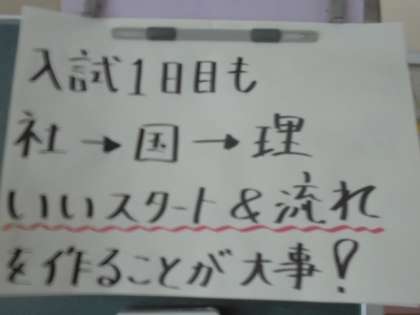 入試1日目も
社→国→理
いいスタート&流れ
を作ることが大事!